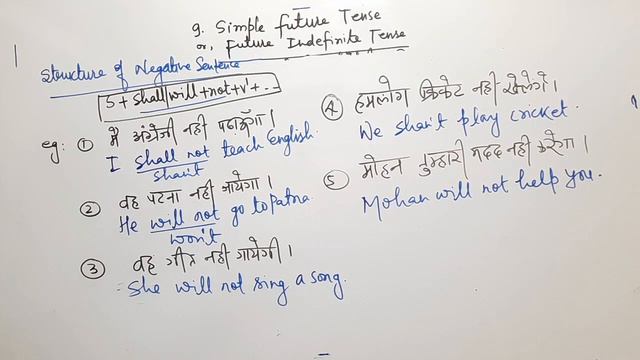 9. Simple future Tense
or, Future Indefinite Tense
Structure of Negative Sentence
S + shall/will + not + v' + ...
eg: ① मैं अंग्रेजी नहीं पढ़ाऊँगा।
I shall not teach English.
shan't
② वह पटना नहीं जायेगा।
He will not go to Patna
won't
③ वह गीत नहीं गायेगी।
She will not sing a song.
④ हमलोग क्रिकेट नहीं खेलेंगे।
We shan't play cricket.
⑤ मोहन तुम्हारी मदद नहीं करेगा।
Mohan will not help you.